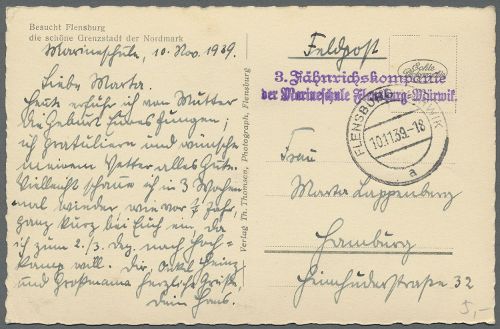 Besucht Flensburg
die schöne Grenzstadt der Nordmark
Marineschule, 10. Nov. 1939.
Liebe Marta.
Heute erfuhr ich von Mutter
die Geburt Eures Jungen;
ich gratuliere und wünsche
meinem Vetter alles Gute.
Vielleicht schaue ich in 3 Wochen
mal wieder wie vor 7 Jahr.
ganz kurz bei Euch ein, da
ich zum 2./3. Dez. nach Hoch-
kamp will. Dir, Onkel Heinz
und Großmama herzliche Grüße,
Dein Hans.
Verlag Th. Thomsen, Photograph, Flensburg
Feldpost
Echte
3. Fähnrichskompanie
der Marineschule Flensburg-Mürwik.
FLENSBURG-MÜRWIK
10.11.39.-18
a
Frau
Marta Lappenberg
Hamburg
Heimhuderstraße 32
5,-